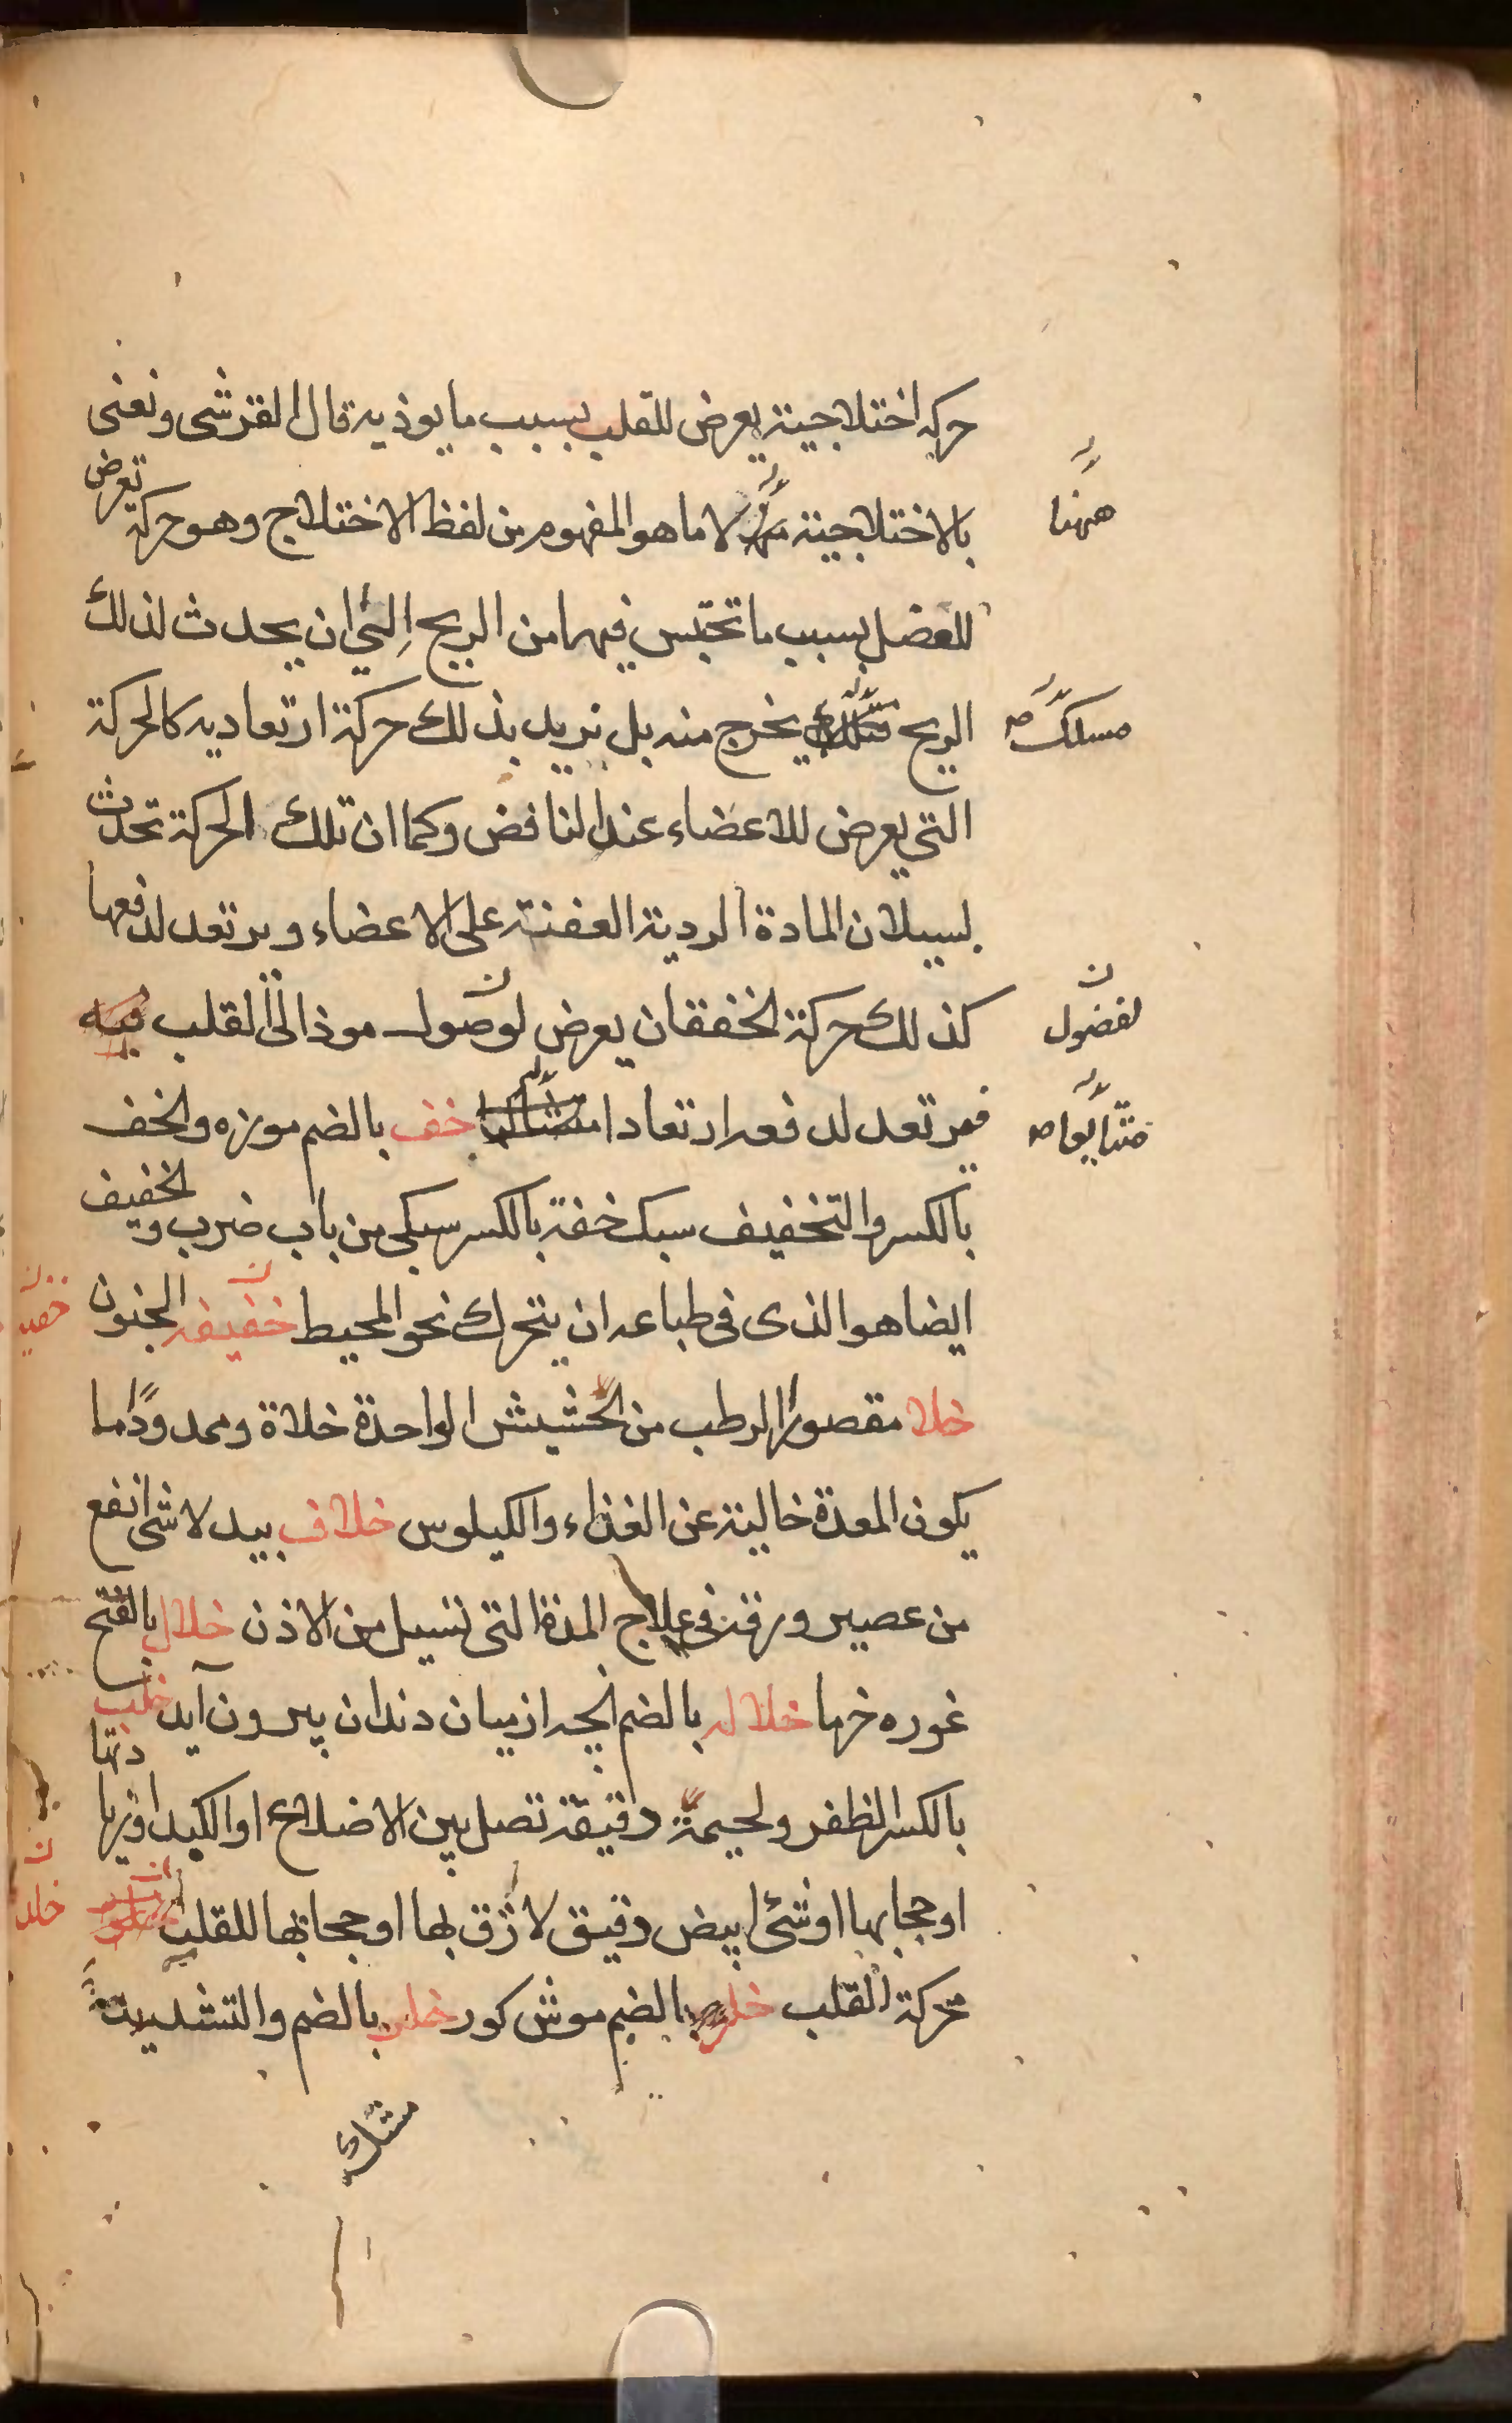 حركه اختلاجية يعرض للقلب بسبب ما يوذيه قال القرشى ونعنى
بالاختلاجية لا ما هو المفهوم من لفظ الاختلاج وهو حركة تعرض
ههنا
للعضل بسبب ما تحتبس فيها من الريح الى ان يحدث لذلك
الريح يخرج منه بل نريد بذلك حركة ارتعاديه كالحركة
مسلك صح
التى يعرض للاعضاء عند النافض وكما ان تلك الحركة تحدث
لسيلان المادة الردية العفنة على الاعضاء ويرتعد لدفعها
كذلك حركة الخفقان يعرض لوصول موذ الى القلب فيه
لفضول ن
فيرتعد لدفعه ارتعادا خف بالضم موزه والخف
متتابعا صح
بالكسر والتخفيف سبك خفة بالكسر سبكى من باب ضرب والخفيف
ايضا هو الذى فى طباعه ان يتحرك نحو المحيط خفيفه الجنون
خلا مقصورا الرطب من الحشيش الواحدة خلاة وممدودًا ما
يكون المعدة خالية عن الغذاء والكيلوس خلاف بيد لا شى انفع
من عصير ورقه فى علاج المدة التى تسيل من الاذن خلال بالفتح
غوره خرما خلاله بالضم انچه از ميان دندان بيرون آيد خلب
بالكسر الظفر ولحيمة دقيقة تصل بين الاضلاع او الكبد او زيادتها
او حجابها او شئ ابيض دقيق لازق بها او حجابها للقلب
حركة القلب خلد بالضم موش كور خلر بالضم والتشديد
خلد ن
مشك